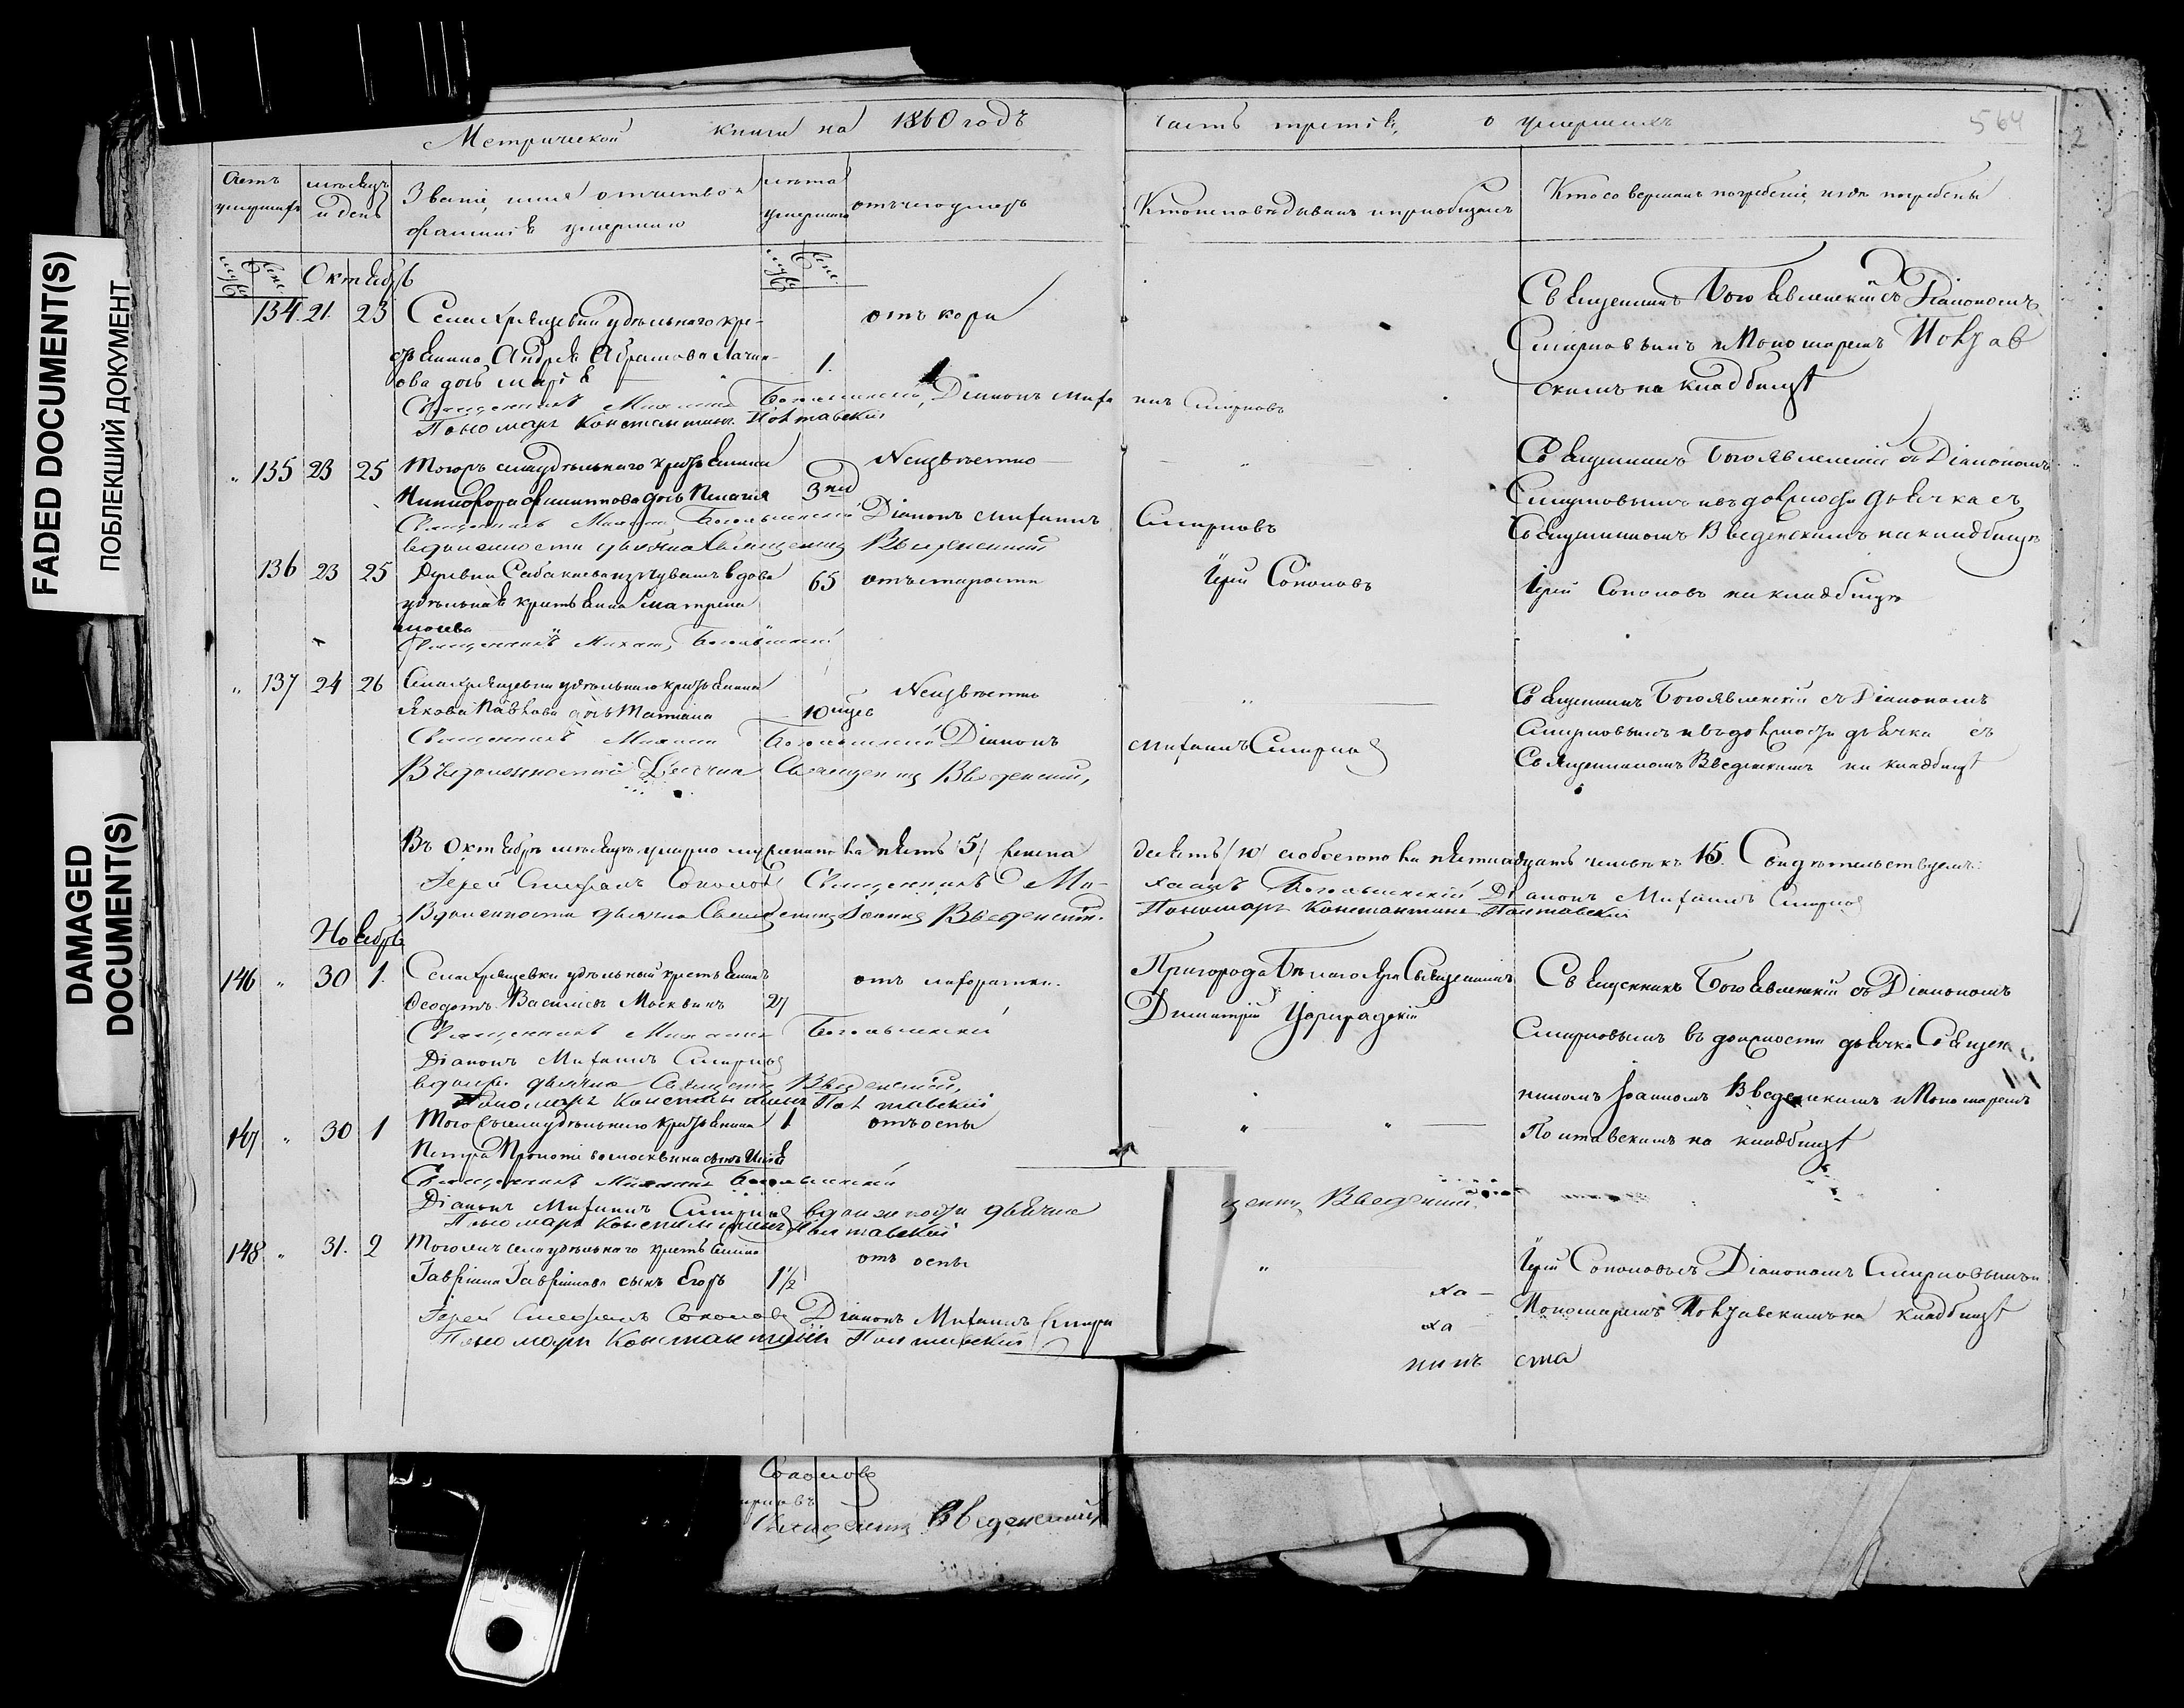 FADED DOCUMENT(S)
ПОБЛЕКШИЙ ДОКУМЕНТ
DAMAGED
DOCUMENT(S)
Метрической книги на 1860 годъ
часть третія, о умершихъ
564
2
Счетъ умершихъ
мѣсяцъ и день
Званіе, имя отчество и фамилія умершаго
лѣта умершаго
отъ чего умеръ
Кто исповѣдывалъ и пріобщалъ
Кто совершалъ погребеніе и гдѣ погребены
Октябрь
134 21 23 Села Хрящевки удѣльнаго кре-
стьянина Андрея Абрамова
дочь Марія
1.
отъ кори
Священникъ Богоявленскій съ Діакономъ
Смирновымъ и Пономаремъ Полтав
скимъ на кладбищѣ
Священникъ Михаилъ Богоявленскій, Діаконъ Смирновъ
Пономарь Константинъ Полтавскій
" 135 23 25 Тогожъ села удѣльнаго крестьянина
Никифора Филиппова дочь Пелагія
3 нед
Неизвѣстно
Священникъ Богоявленскій съ Діакономъ
Смирновымъ и въ должности дьячка съ
Священникомъ Введенскимъ на кладбищѣ
Священникъ Михаилъ Богоявленскій Діаконъ Смирновъ
в должности дьячка Священникъ Введенскій
136 23 25 Деревни вдова
удѣльная крестьянка Матрена
65 отъ старости
Іерей Соколовъ
Іерей Соколовъ на кладбищѣ
Священникъ Михаилъ Богоявленскій
" 137 24 26 Села Хрящевки удѣльнаго крестьянина
Якова Павлова дочь Татіана
10 мѣсѣ
Неизвѣстно
"
Священникъ Богоявленскій съ Діакономъ
Смирновымъ и въ должности дьячка съ
Священникомъ Введенскимъ на кладбищѣ
Священникъ Михаилъ Богоявленскій Діаконъ Смирновъ
Въ должности Дьячка Священникъ Введенскій,
Въ Октябрѣ мѣсяцѣ умерло мужеска пола пять /5/ женска
десять /10/ а обоего пола пятнадцать человѣкъ 15. Свидѣтельствуемъ:
Іерей Стефанъ Соколовъ Священникъ Ми-
хаилъ Богоявленскій Діаконъ Смирновъ
В должности дьячка Священникъ Іоаннъ Введенскій.
Пономарь Константинъ Полтавскій
Ноябрь
146 " 30 1. Села Хрящевки удѣльный крестьянинъ
Ѳеодотъ Васильевъ Москвинъ 27
отъ лихорадки.
Пригорода Бѣлаго Яра Священникъ
Димитрій Цареградскій
Священникъ Богоявленскій съ Діакономъ
Смирновымъ въ должности дьячка Священ
никомъ Іоанномъ Введенскимъ и Пономаремъ
Полтавскимъ на кладбищѣ
Священникъ Михаилъ Богоявленскій
Діаконъ Смирновъ
в должн. дьячка Священникъ Введенскій.
Пономарь Константинъ Полтавскій
147 " 30 1 Того села удѣльнаго крестьянина 1
Петра Москвина сынъ Илія
отъ оспы
" "
Священникъ Михаилъ Богоявленскій
Діаконъ Смирновъ в должности дьячка
щенникъ Введенскій.
Пономарь Константинъ Полтавскій
148 " 31. 2 Того же села удѣльнаго крестьянина
Гавріила Гаврилова сынъ Егоръ 1½
отъ оспы
"
Іерей Соколовъ съ Діакономъ Смирновымъ и
Пономаремъ Полтавскимъ на кладбищѣ
Іерей Стефанъ Соколовъ Діаконъ
Пономарь Константинъ Полтавскій
ха
ха
Соколовъ
Введенскій